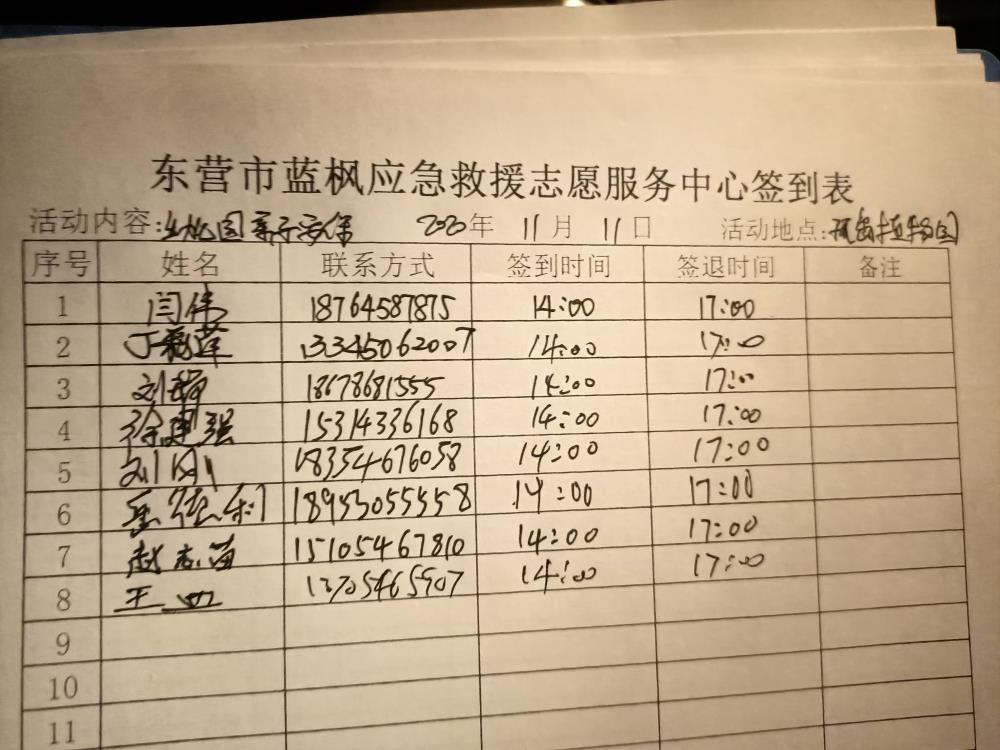 东营市蓝枫应急救援志愿服务中心签到表
活动内容: 2020年 11月 11日 活动地点: 植物园
序号 姓名 联系方式 签到时间 签退时间 备注
1 闫伟 18764587875 14:00 17:00
2 丁 莲 13345062007 14:00 17:00
3 刘 18678681555 14:00 17:00
4 徐建强 15314336168 14:00 17:00
5 刘刚 18354676058 14:00 17:00
6 岳德利 18953055558 14:00 17:00
7 赵志苗 15105467810 14:00 17:00
8 王 13705465907 14:00 17:00
9
10
11